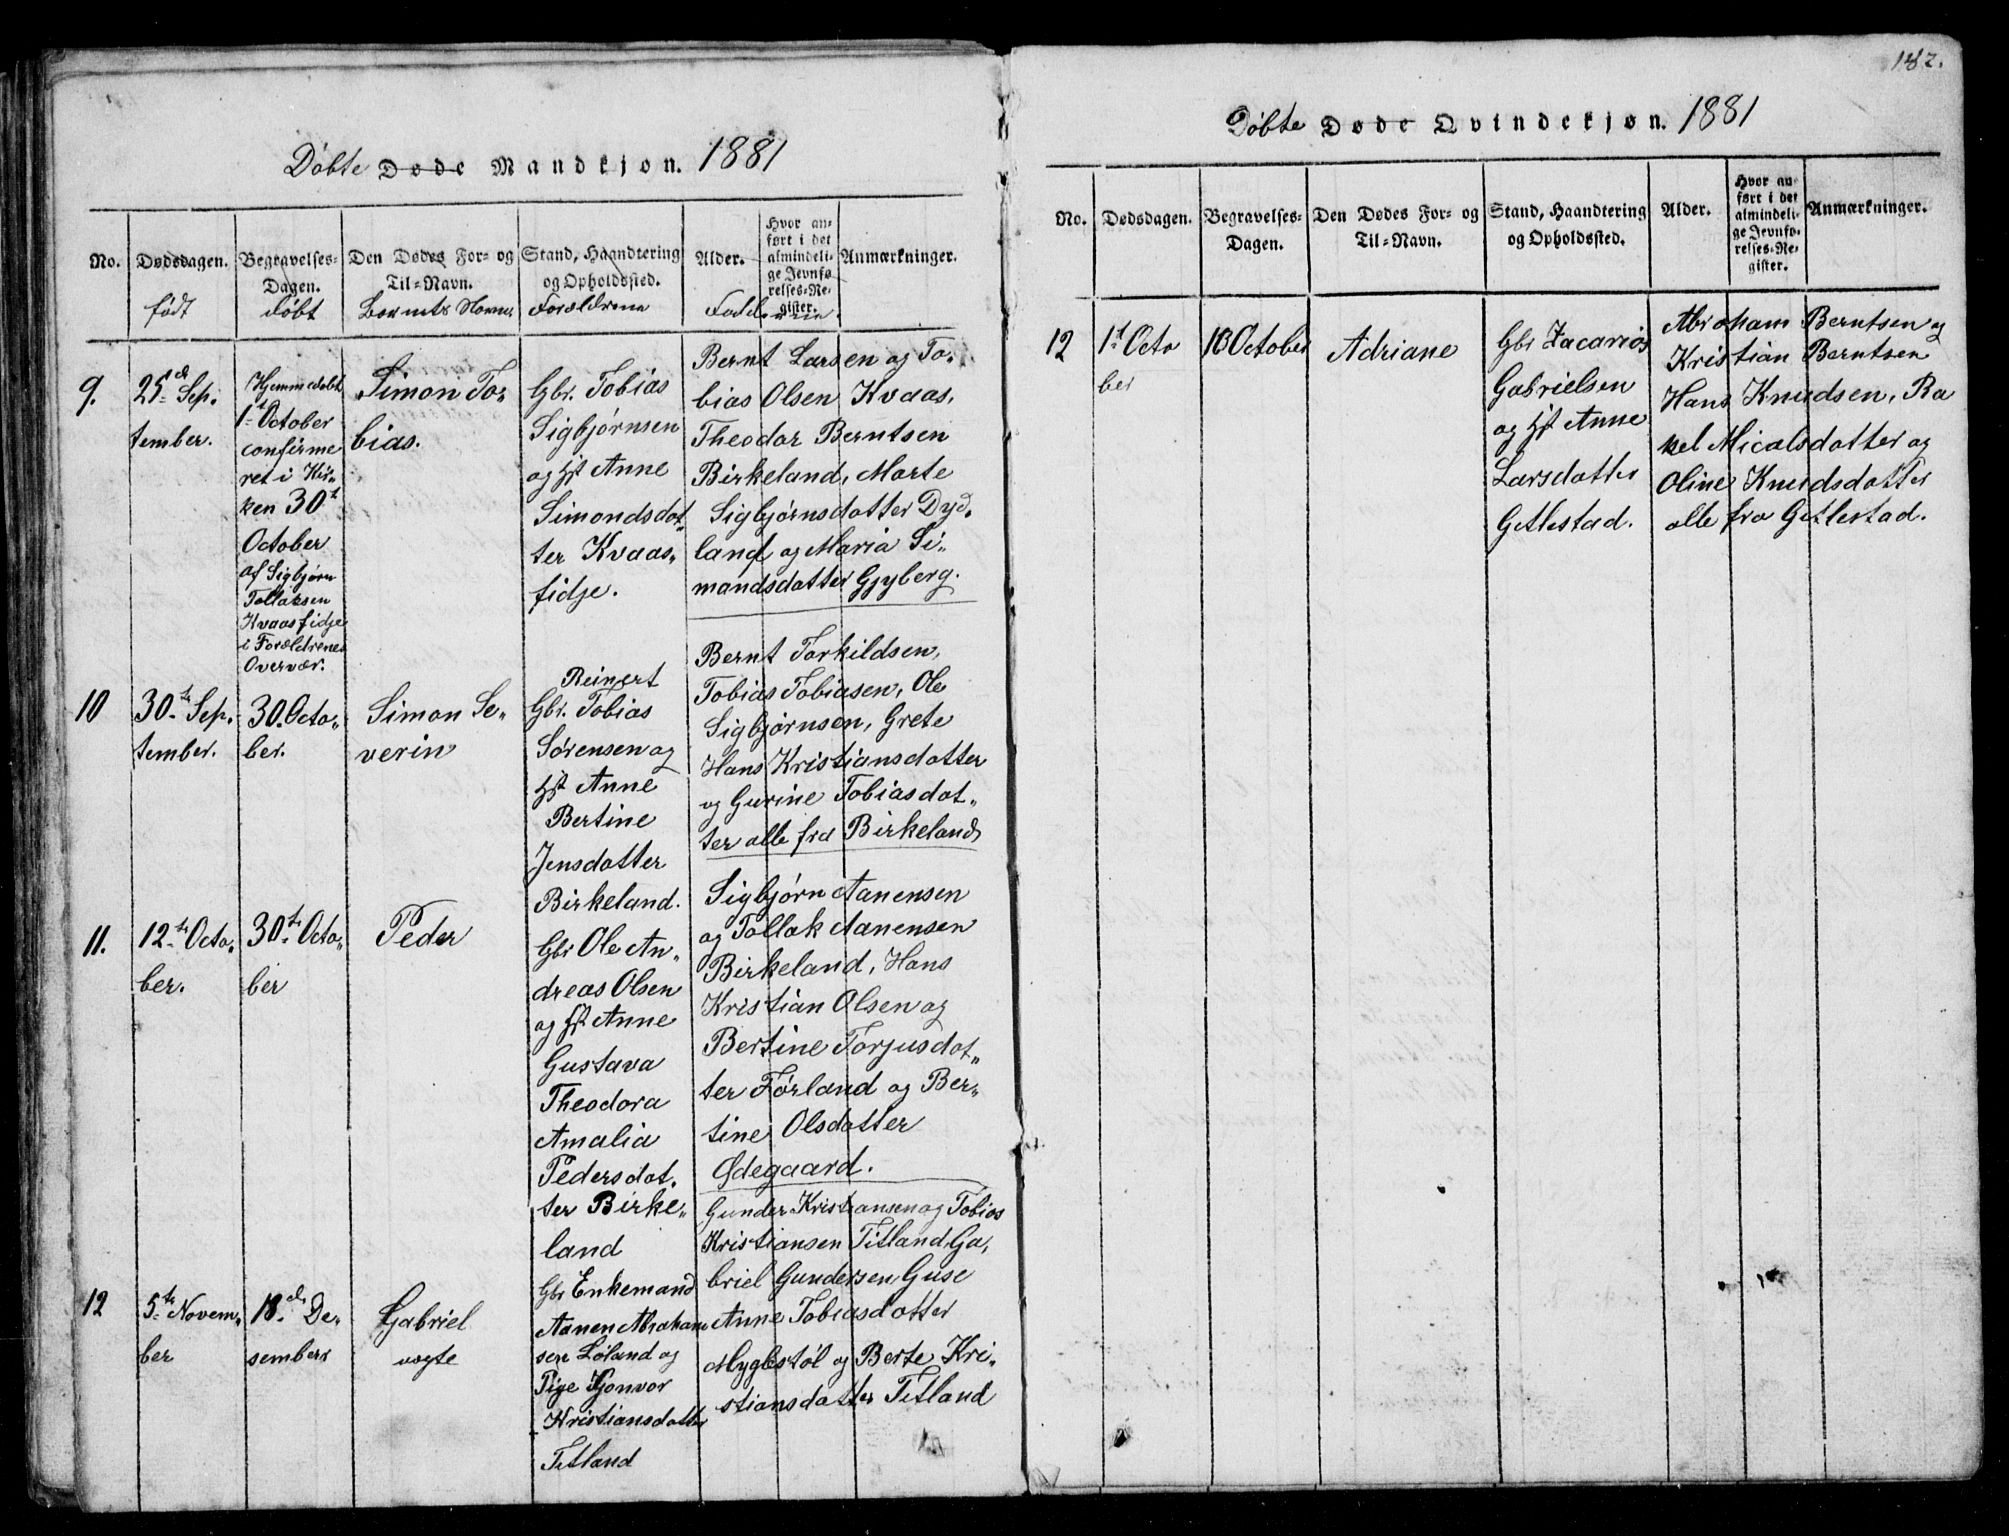 Döbte Døde Mandkjøn. 1881
No.
Dødsdagen.
født
Begravelses-
Dagen.
døbt
Den Dødes For- og
Til-Navn.
Barnets Navn.
Stand, Haandtering
og Opholdssted.
Forældrene
Alder.
Hvor an-
ført i det
almindeli-
ge Jevnfø-
relses-Re-
gister.
Fadderne.
Anmærkninger.
9.
25d Sep.
tember.
Hjemmedøbt
1t October
confirme
ret i Kir-
ken 30t
October
af Sigbjørn
Tollaksen
Kvaasfidje
i Forældrenes
Overvær.
Simon To-
bias.
Gbr. Tobias
Sigbjørnsen
og Hst Anne
Simondsdot
ter Kvaas-
fidje.
Bernt Larsen og To-
bias Olsen Kvaas,
Theodor Berntsen
Birkeland, Marte
Sigbjørnsdatter Dyd.
land og Maria Si-
mandsdatter Gjyberg.
10
30te Sep.
tember.
30. Octo-
ber.
Simon Se-
verin
Reinert
Gbr. Tobias
Sørensen og
Hst Anne
Bertine
Jensdatter
Birkeland.
Bernt Torkildsen,
Tobias Tobiasen, Ole
Sigbjørnsen, Grete
Hans Kristiansdatter
og Gurine Tobiasdat-
ter alle fra Birkeland
11.
12te Octo-
ber.
30te Octo-
ber
Peder
Gbr Ole An-
dreas Olsen
og Hst Anne
Gustava
Theodora
Amalia
Pedersdat.
ter Birke-
land
Sigbjørn Aanensen
og Tollak Aanensen
Birkeland, Hans
Kristian Olsen og
Bertine Torjusdat-
ter Førland og Ber-
tine Olsdatter
Ødegaard.
12
5te Novem-
ber
18d De-
sember
Gabriel
uægte
Gbr Enkemand
Aanen Abraham
sen Løland og
Pige Gonvor
Kristiansdatter
Titland
Gunder Kristiansen og Tobias
Kristiansen Titland, Ga-
briel Gundersen Guse
Anne Tobiasdatter
Myglestøl og Berte Kri-
stiansdatter Titland
182.
Döbte Døde Qvindekjøn. 1881
No.
Dødsdagen.
Begravelses-
Dagen.
Den Dødes For- og
Til-Navn.
Stand, Haandtering
og Opholdssted.
Alder.
Hvor an-
ført i det
almindeli-
ge Jevnfø-
relses-Re-
gister.
Anmærkninger.
12
1t Octo
ber
18 October
Adriane
Gbr Zacarias
Gabrielsen
og Hst Anne
Larsdatter
Getlestad.
Abraham Berntsen og
Kristian Berntsen
Hans Knudsen, Ra
kel Micalsdatter og
Oline Knudsdatter
alle fra Getlestad.